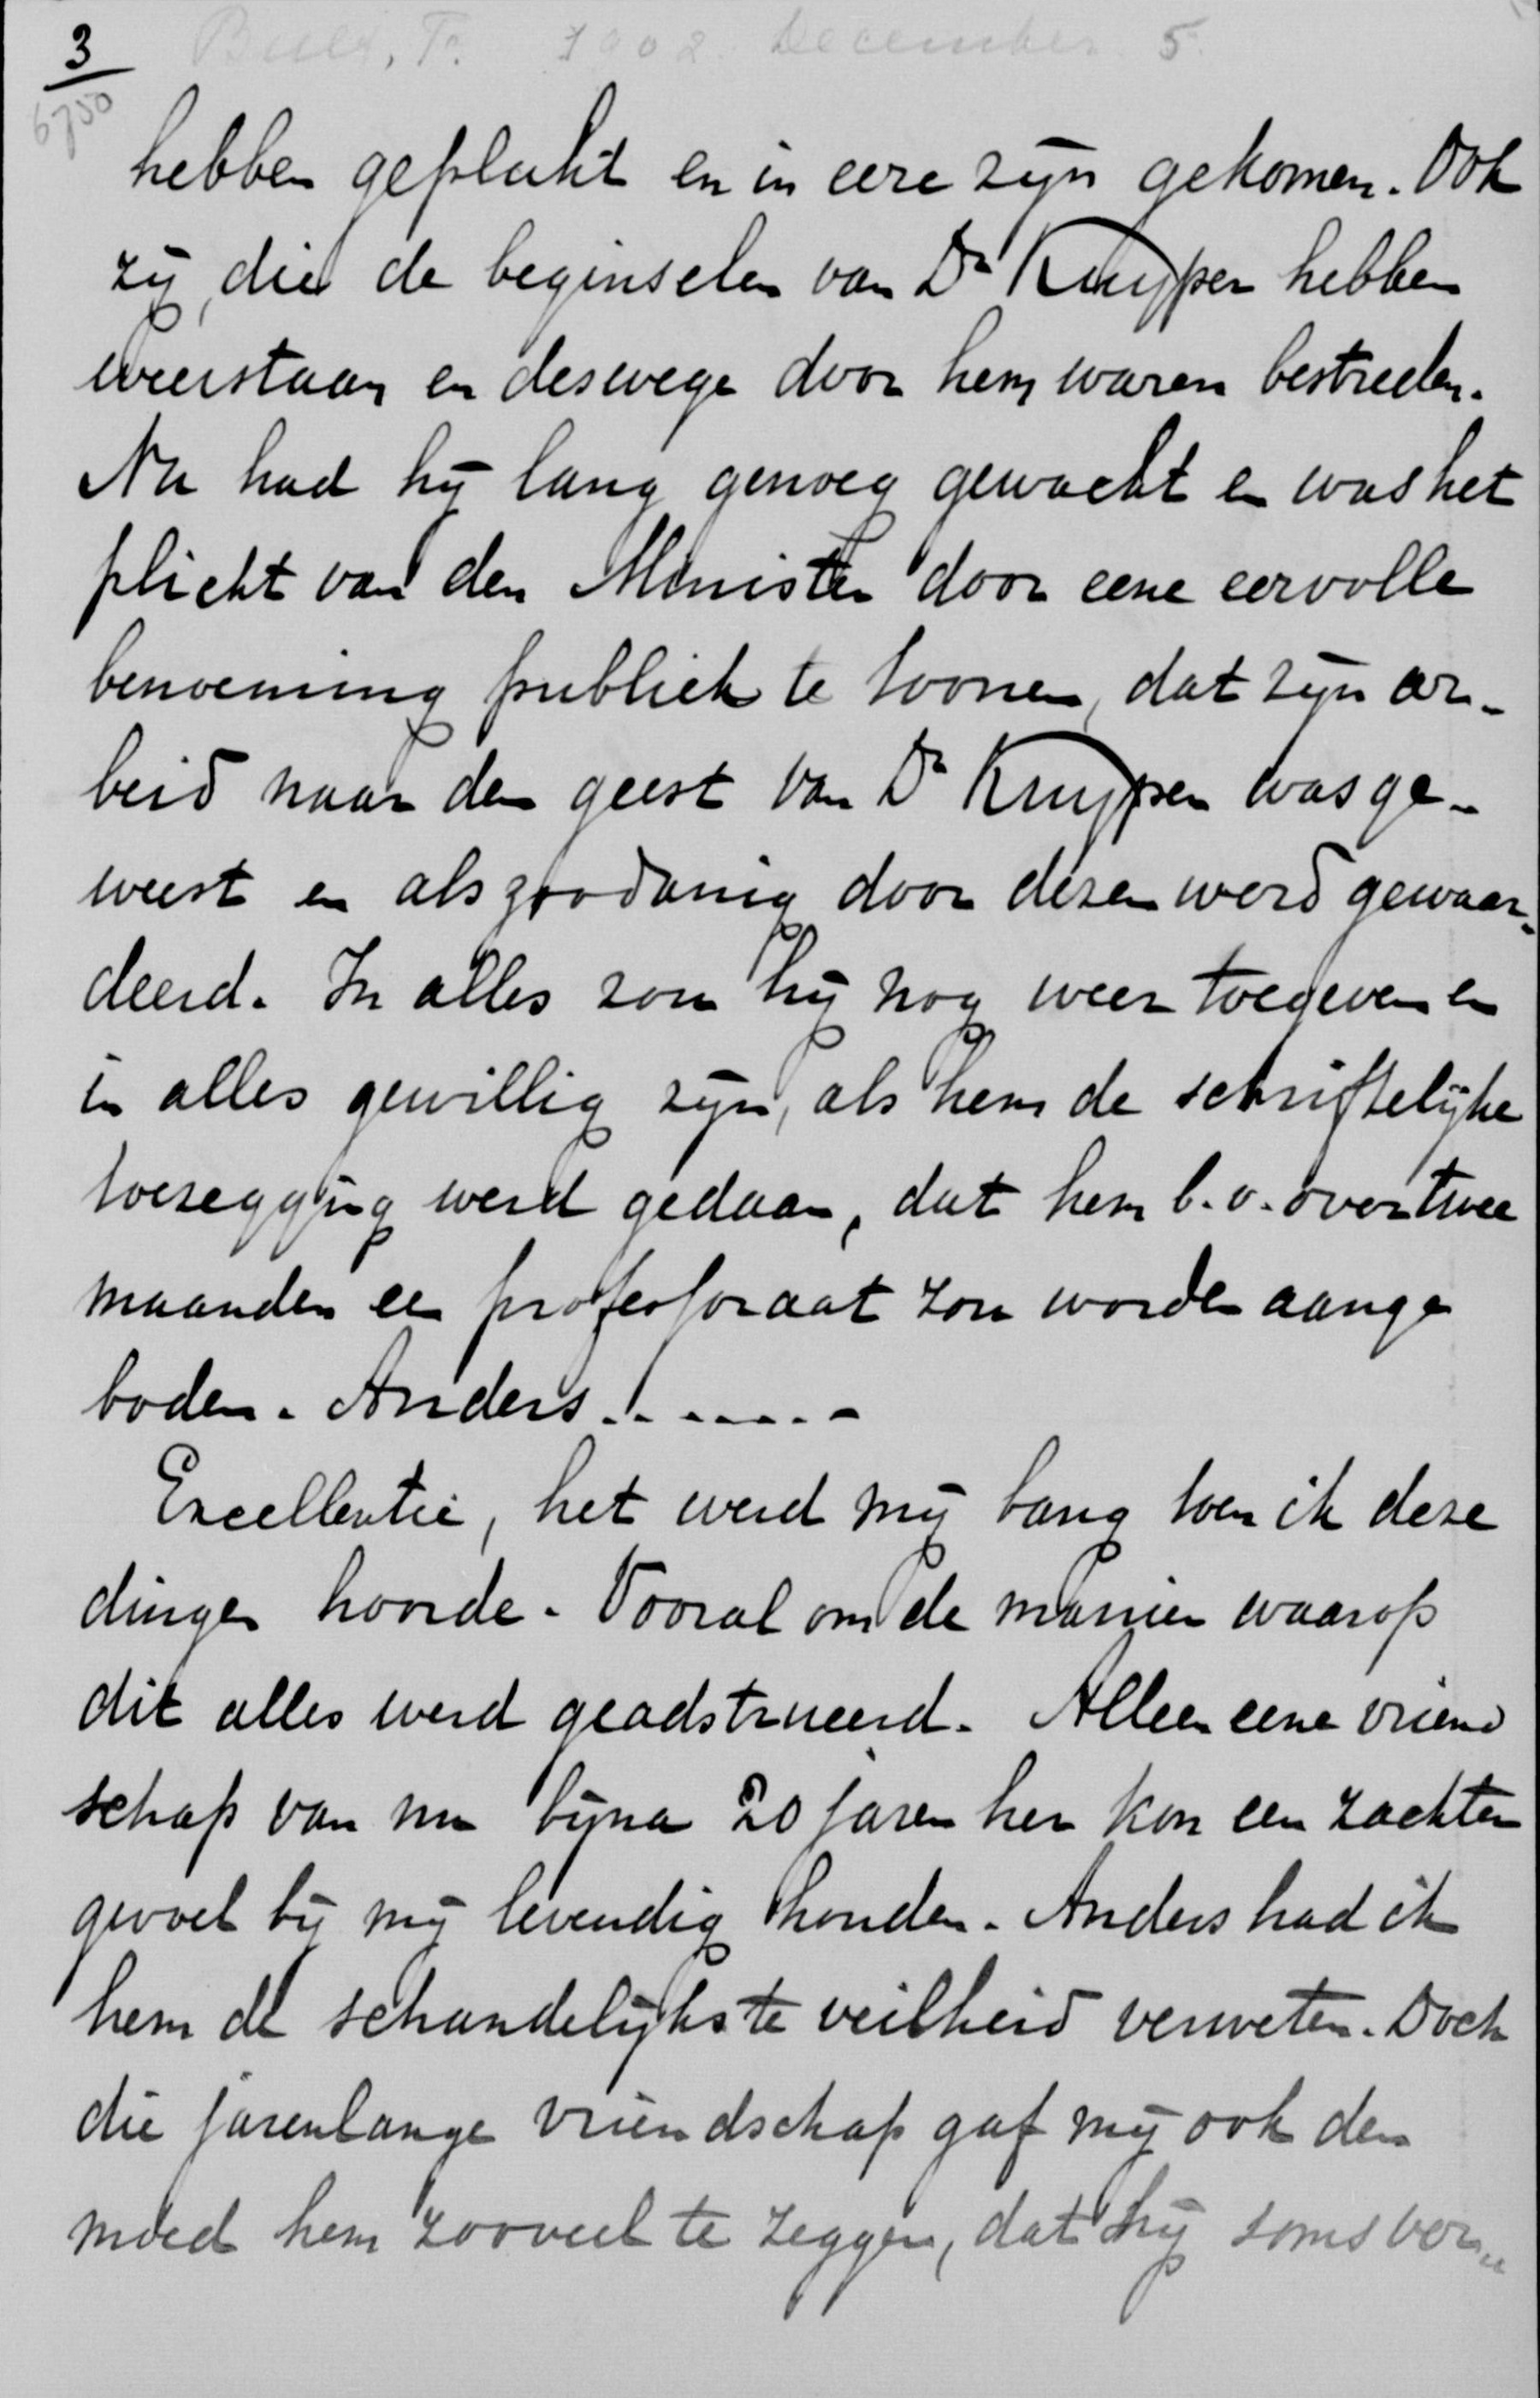 3
6750
1902 December 5
hebben geplukt en in eere zijn gekomen. Ook
zij, die de beginselen van Dr Kuyper hebben
weerstaan en deswege door hem waren bestreden.
Nu had hij lang genoeg gewacht en was het
plicht van den Minister door eene eervolle
benoeming publiek te toonen, dat zijn ar-
beid naar den geest van Dr Kuyper was ge-
weest en als zoodanig door dezen werd gewaar-
deerd. In alles zou hij nog weer toegeven en
in alles gewillig zijn, als hem de schriftelijke
toezegging werd gedaan, dat hem b.v. over twee
maanden een professoraat zou worden aange
boden. Anders........
Excellentie, het werd mij bang toen ik deze
dingen hoorde. Vooral om de manier waarop
dit alles werd geadstrueerd. Alleen eene vriend
schap van nu bijna 20 jaren her kon een zachten
gevoel bij mij levendig houden. Anders had ik
hem de schandelijkste veilheid verweten. Doch
die jarenlange vriendschap gaf mij ook den
moed hem zooveel te zeggen, dat hij soms ver-